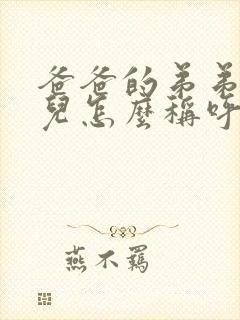 爸爸的弟弟
兒怎麼稱呼
燕不羈